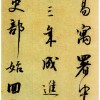 易寓署中
三年成進
史部始回